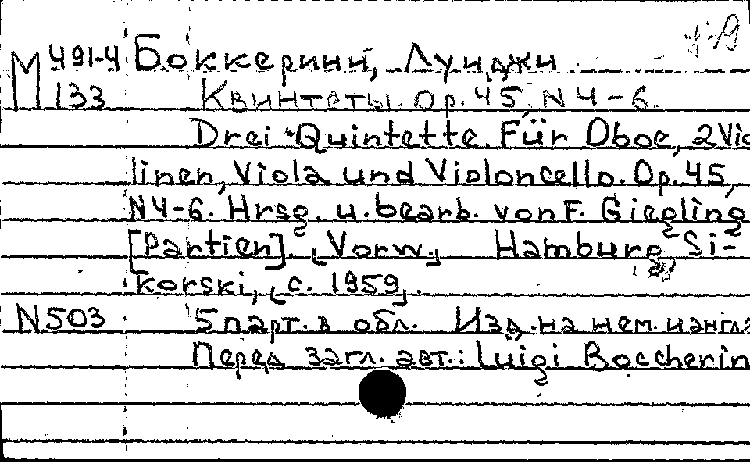 М 491-4 Боккерини, Луиджи
133 Квинтеты. Ор. 45, N 4-6.
Drei Quintette. Für Oboe, 2 Vio
linen, Viola und Violoncello. Op. 45,
N 4-6. Hrsg. u. bearb. von F. Giegling
[Partien]. [Vorw.] Hamburg, Si-
korski, [c. 1959].
N503 5 парт. в обл. Изд. на нем. и англ.
Перед загл. авт.: Luigi Boccherin